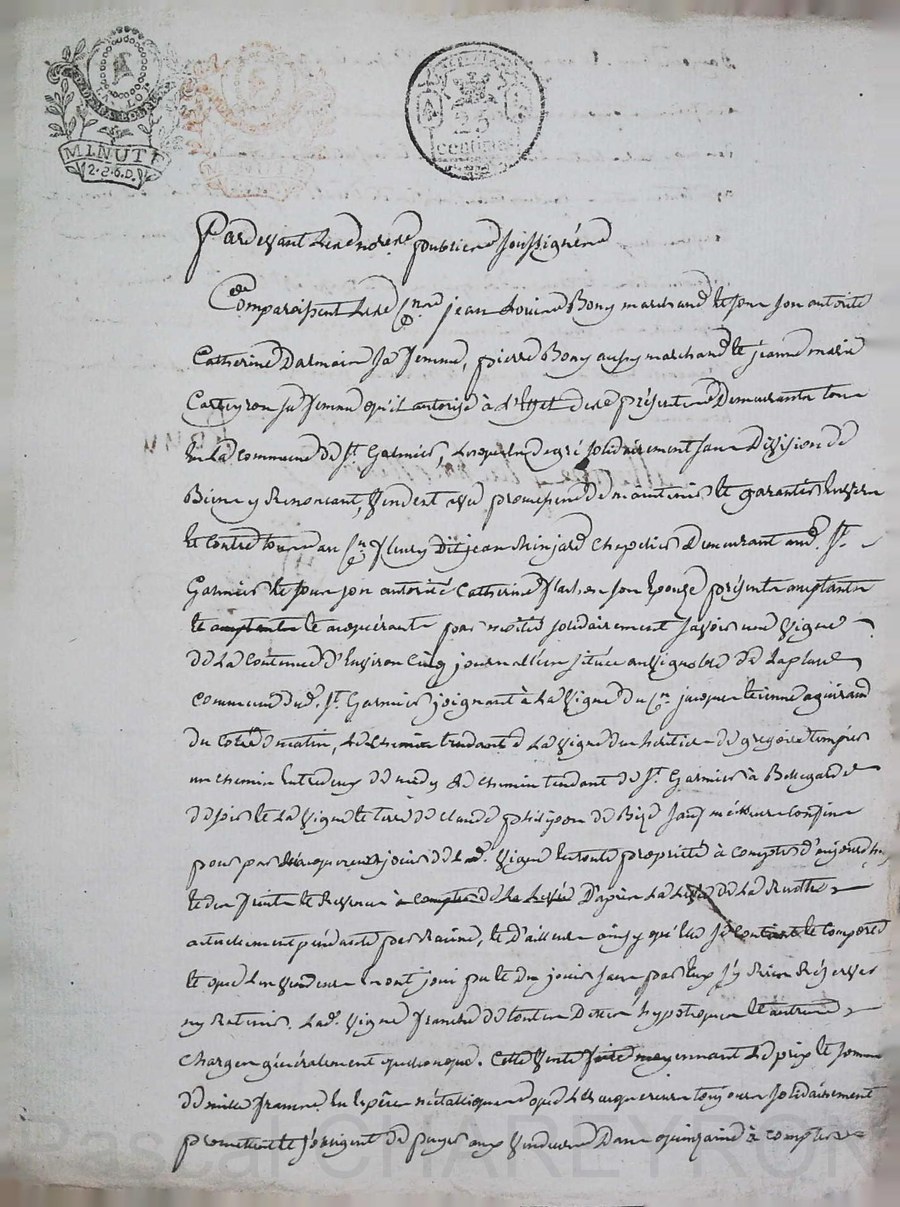 LA LOI
MINUTE
25
centimes
2.2.6.D.
Pardevant les notaires publics soussignés
Comparoissent les Cns jean Louis Bony marchand et sous son autorité
Catherine Darmain sa femme, pierre Bony aussy marchand et jeanne marie
Carteyron sa femme qu'il autorise à l'effet des présentes Demeurants tous
en La commune de St. Galmier, Lesquels de gré solidairement sans Division de
Biens y Renoncant, Vendent avec promesse de maintenir et garantir Envers
et contre tous au Cn fleury dit jean chapelier Demeurant aud. St.
Galmier et sous son autorité Catherine son Epouze présents acceptants
et acquérants par moitié solidairement savoir une Vigne
de La Contenue d'Environ Cinq journallées située au Vignoble de Laplace
commune dud. St. Galmier joignant à La Vigne du Cn. jacques etienne aguiraud
du Coté de matin, Le chemin tendant de La Vigne des héritiers de gregoire
un chemin Entredeux de midy, Le chemin tendant de St. Galmier à Bellegarde
de soir et La Vigne et terre de Claude philipon de Bize sauf meilleurs Confins
pour par Les acquereurs jouir de lad. Vigne En toute propriété à compter d'aujourd'huy
et des fruits et Revenus à compter de La Levée D'après La Levée de La Recolte
actuellement pendante par Racine, et D'ailleurs ainsy qu'elle se contient et comporte
et que Les Vendeurs en ont joui pu et du jouir sans par Eux s'y Rien Réserver
ny Retenir. Lad. Vigne franche de toutes Dettes hypotheques et autres
charges généralement quelconques. Cette Vente faite moyennant Le prix et somme
de mille francs En Espèces métalliques que Les acquereurs toujours solidairement
promettent et s'obligent de payer aux Vendeurs Dans quinzaine à compter
Pascal CHAREYRON